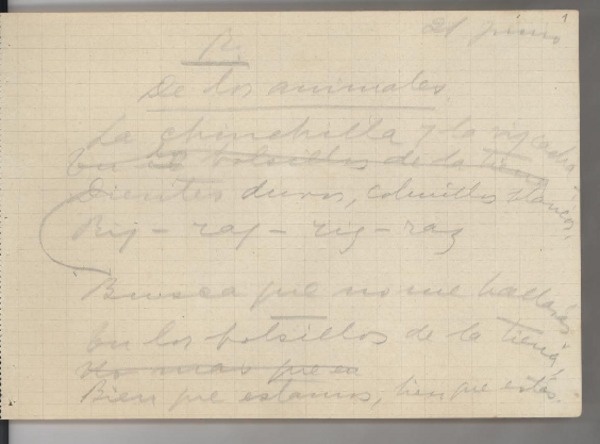 1
21 junio
De los animales
La chinchilla y la vizcacha
en el bolsillos de la tierra
Dientes duros, colmillos blancos,
Rig - rag - rig - raz
Busca que no me hallarás
En los bolsillos de la tierra,
no mas que en
Bien que estamos, bien que estás.